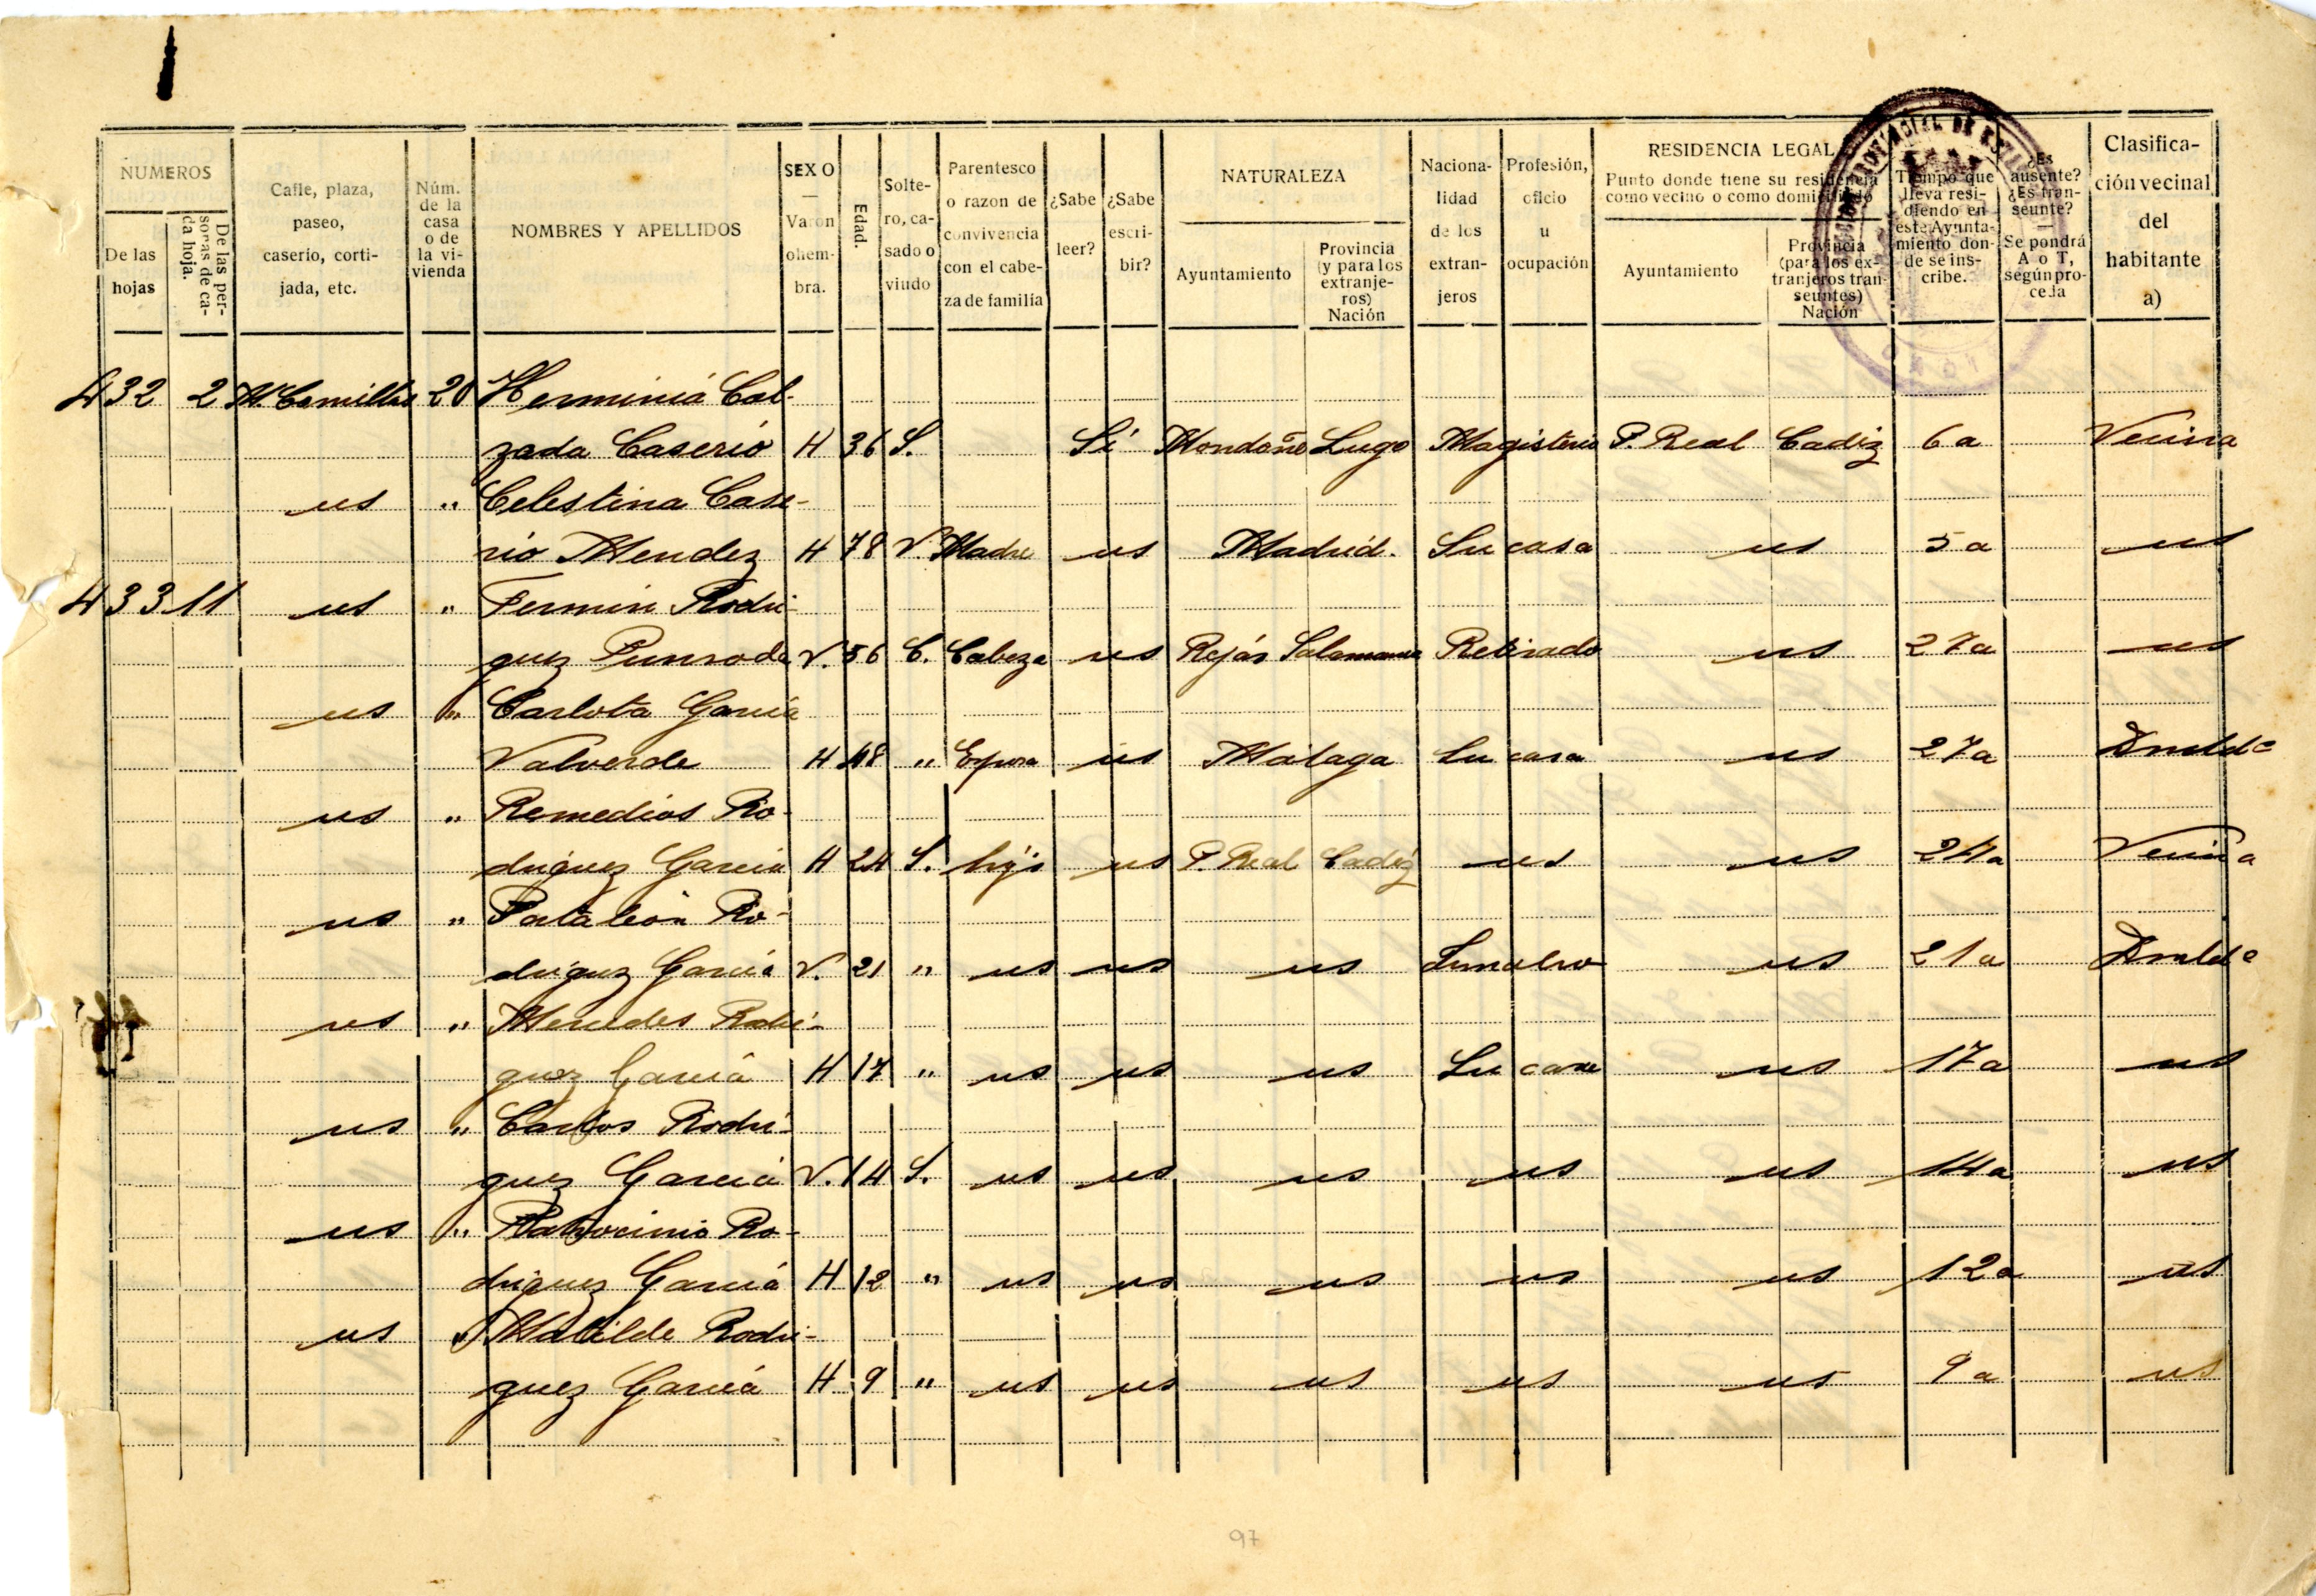 NUMEROS
De las hojas
De las personas de cada hoja.
Calle, plaza, paseo, caserio, cortijada, etc.
Núm. de la casa o de la vivienda
NOMBRES Y APELLIDOS
SEXO — Varon o hembra.
Edad.
Soltero, casado o viudo
Parentesco o razon de convivencia con el cabeza de familia
¿Sabe leer?
¿Sabe escribir?
NATURALEZA
Ayuntamiento
Provincia (y para los extranjeros) Nación
Nacionalidad de los extranjeros
Profesión, oficio u ocupación
RESIDENCIA LEGAL
Punto donde tiene su residencia como vecino o como domiciliado
Ayuntamiento
Provincia (para los extranjeros transeuntes) Nación
Tiempo que lleva residiendo en este Ayuntamiento donde se inscribe.
¿Es ausente? ¿Es transeunte? — Se pondrá A o T, según proceda
Clasificación vecinal del habitante a)
432 2 M. Comillas 20 Herminia Cal-
zada Caserio H 36 S. Si Mondoñe Lugo Magisterio P. Real Cadiz 6 a Vecina
us " Celestina Case-
rio Mendez H 78 V. Madre us Madrid. Su casa us 5 a us
433 11 us " Fermin Rodri-
guez V. 56 C. Cabeza us Salamanca Retirado us 27 a us
us " Carlota Garcia
Valverde H 48 " Esposa us Málaga Su casa us 27 a
us " Remedios Ro-
driguez Garcia H 24 S. hijo us P. Real Cadiz us us 24 a Vecina
us " Pataleón Ro-
driguez Garcia V. 21 " us us us us 21 a
us " Mercedes Rodri-
guez Garcia H 17 " us us us Su casa us 17 a us
us " Carlos Rodri-
guez Garcia V. 14 S. us us us us us 14 a us
us " Patrocinio Ro-
driguez Garcia H 12 " us us us us us 12 a us
us " Matilde Rodri-
guez Garcia H 9 " us us us us us 9 a us
97